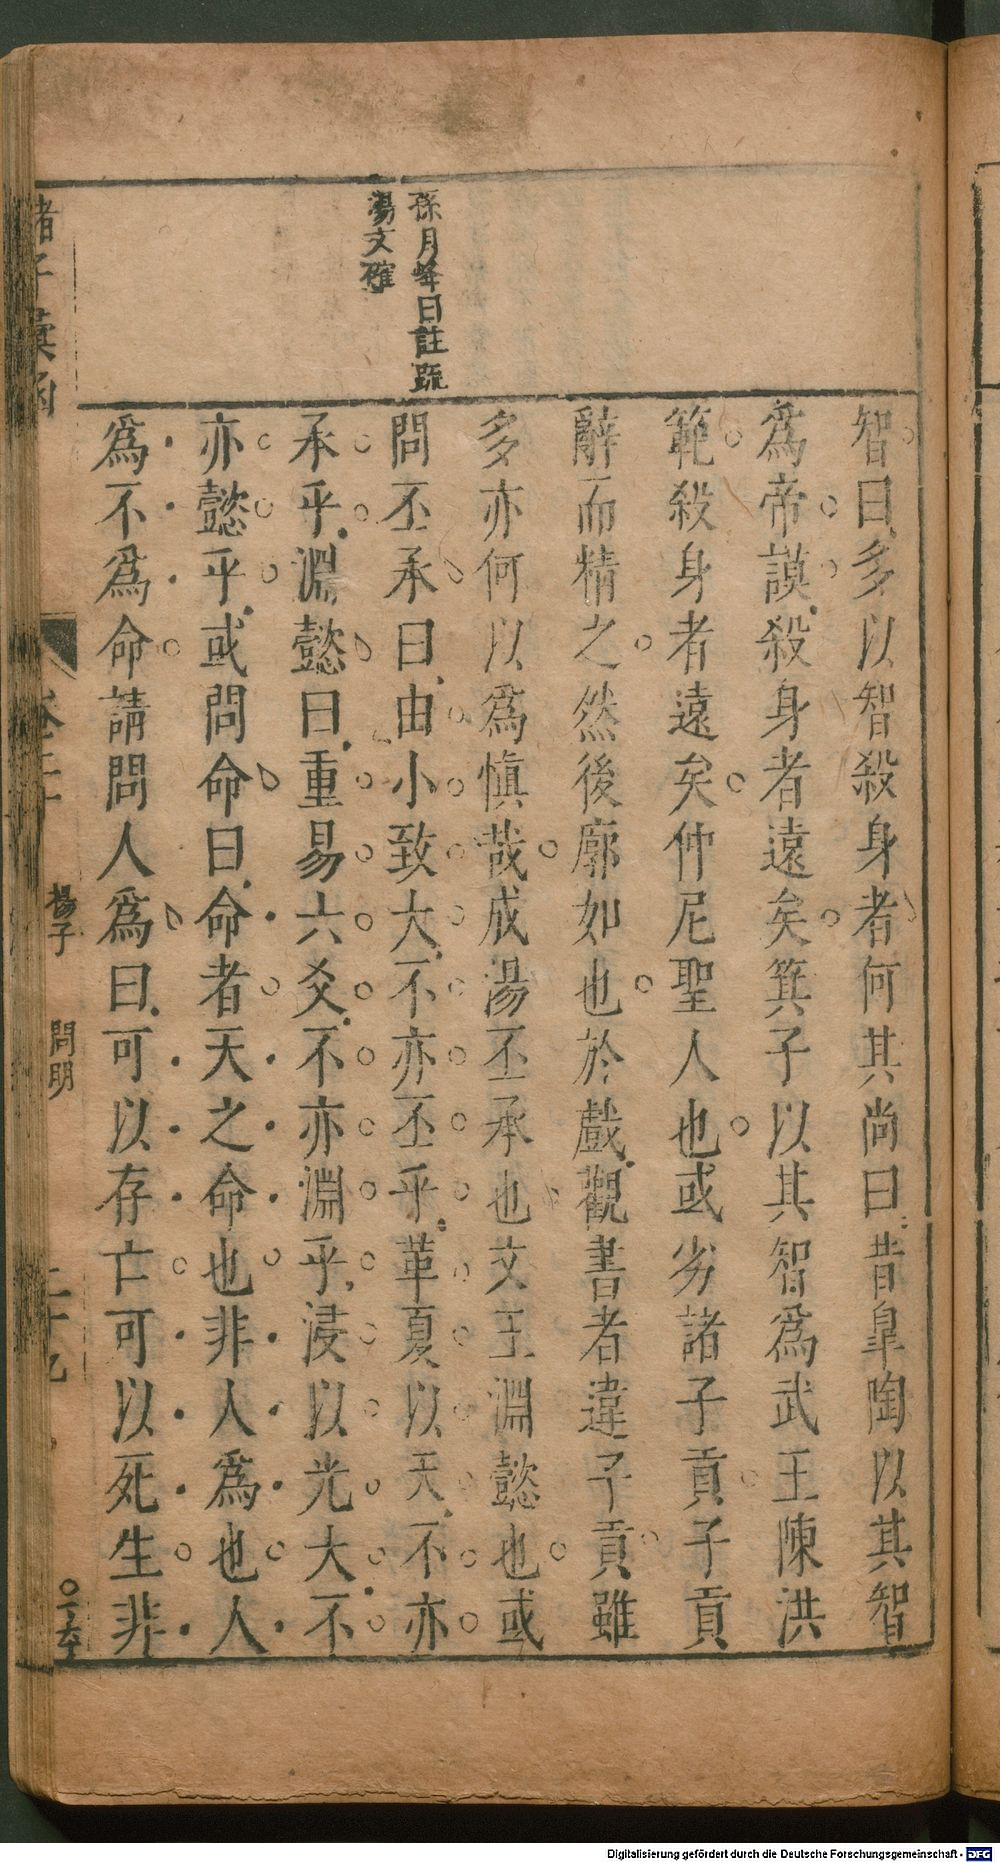 孫月峰曰註疏
湯文確
智曰多以智殺身者何其尚曰昔臯陶以其智
爲帝謨殺身者遠矣箕子以其智爲武王陳洪
範殺身者遠矣仲尼聖人也或劣諸子貢子貢
辭而精之然後廓如也於戲觀書者違子貢雖
多亦何以爲慎哉成湯丕承也文王淵懿也或
問丕承曰由小致大不亦丕乎革夏以天不亦
承乎淵懿曰重易六爻不亦淵乎浸以光大不
亦懿乎或問命曰命者天之命也非人爲也人
爲不爲命請問人爲曰可以存亡可以死生非
諸子彙函
楊子
問明
二十九
Digitalisierung gefördert durch die Deutsche Forschungsgemeinschaft - DFG